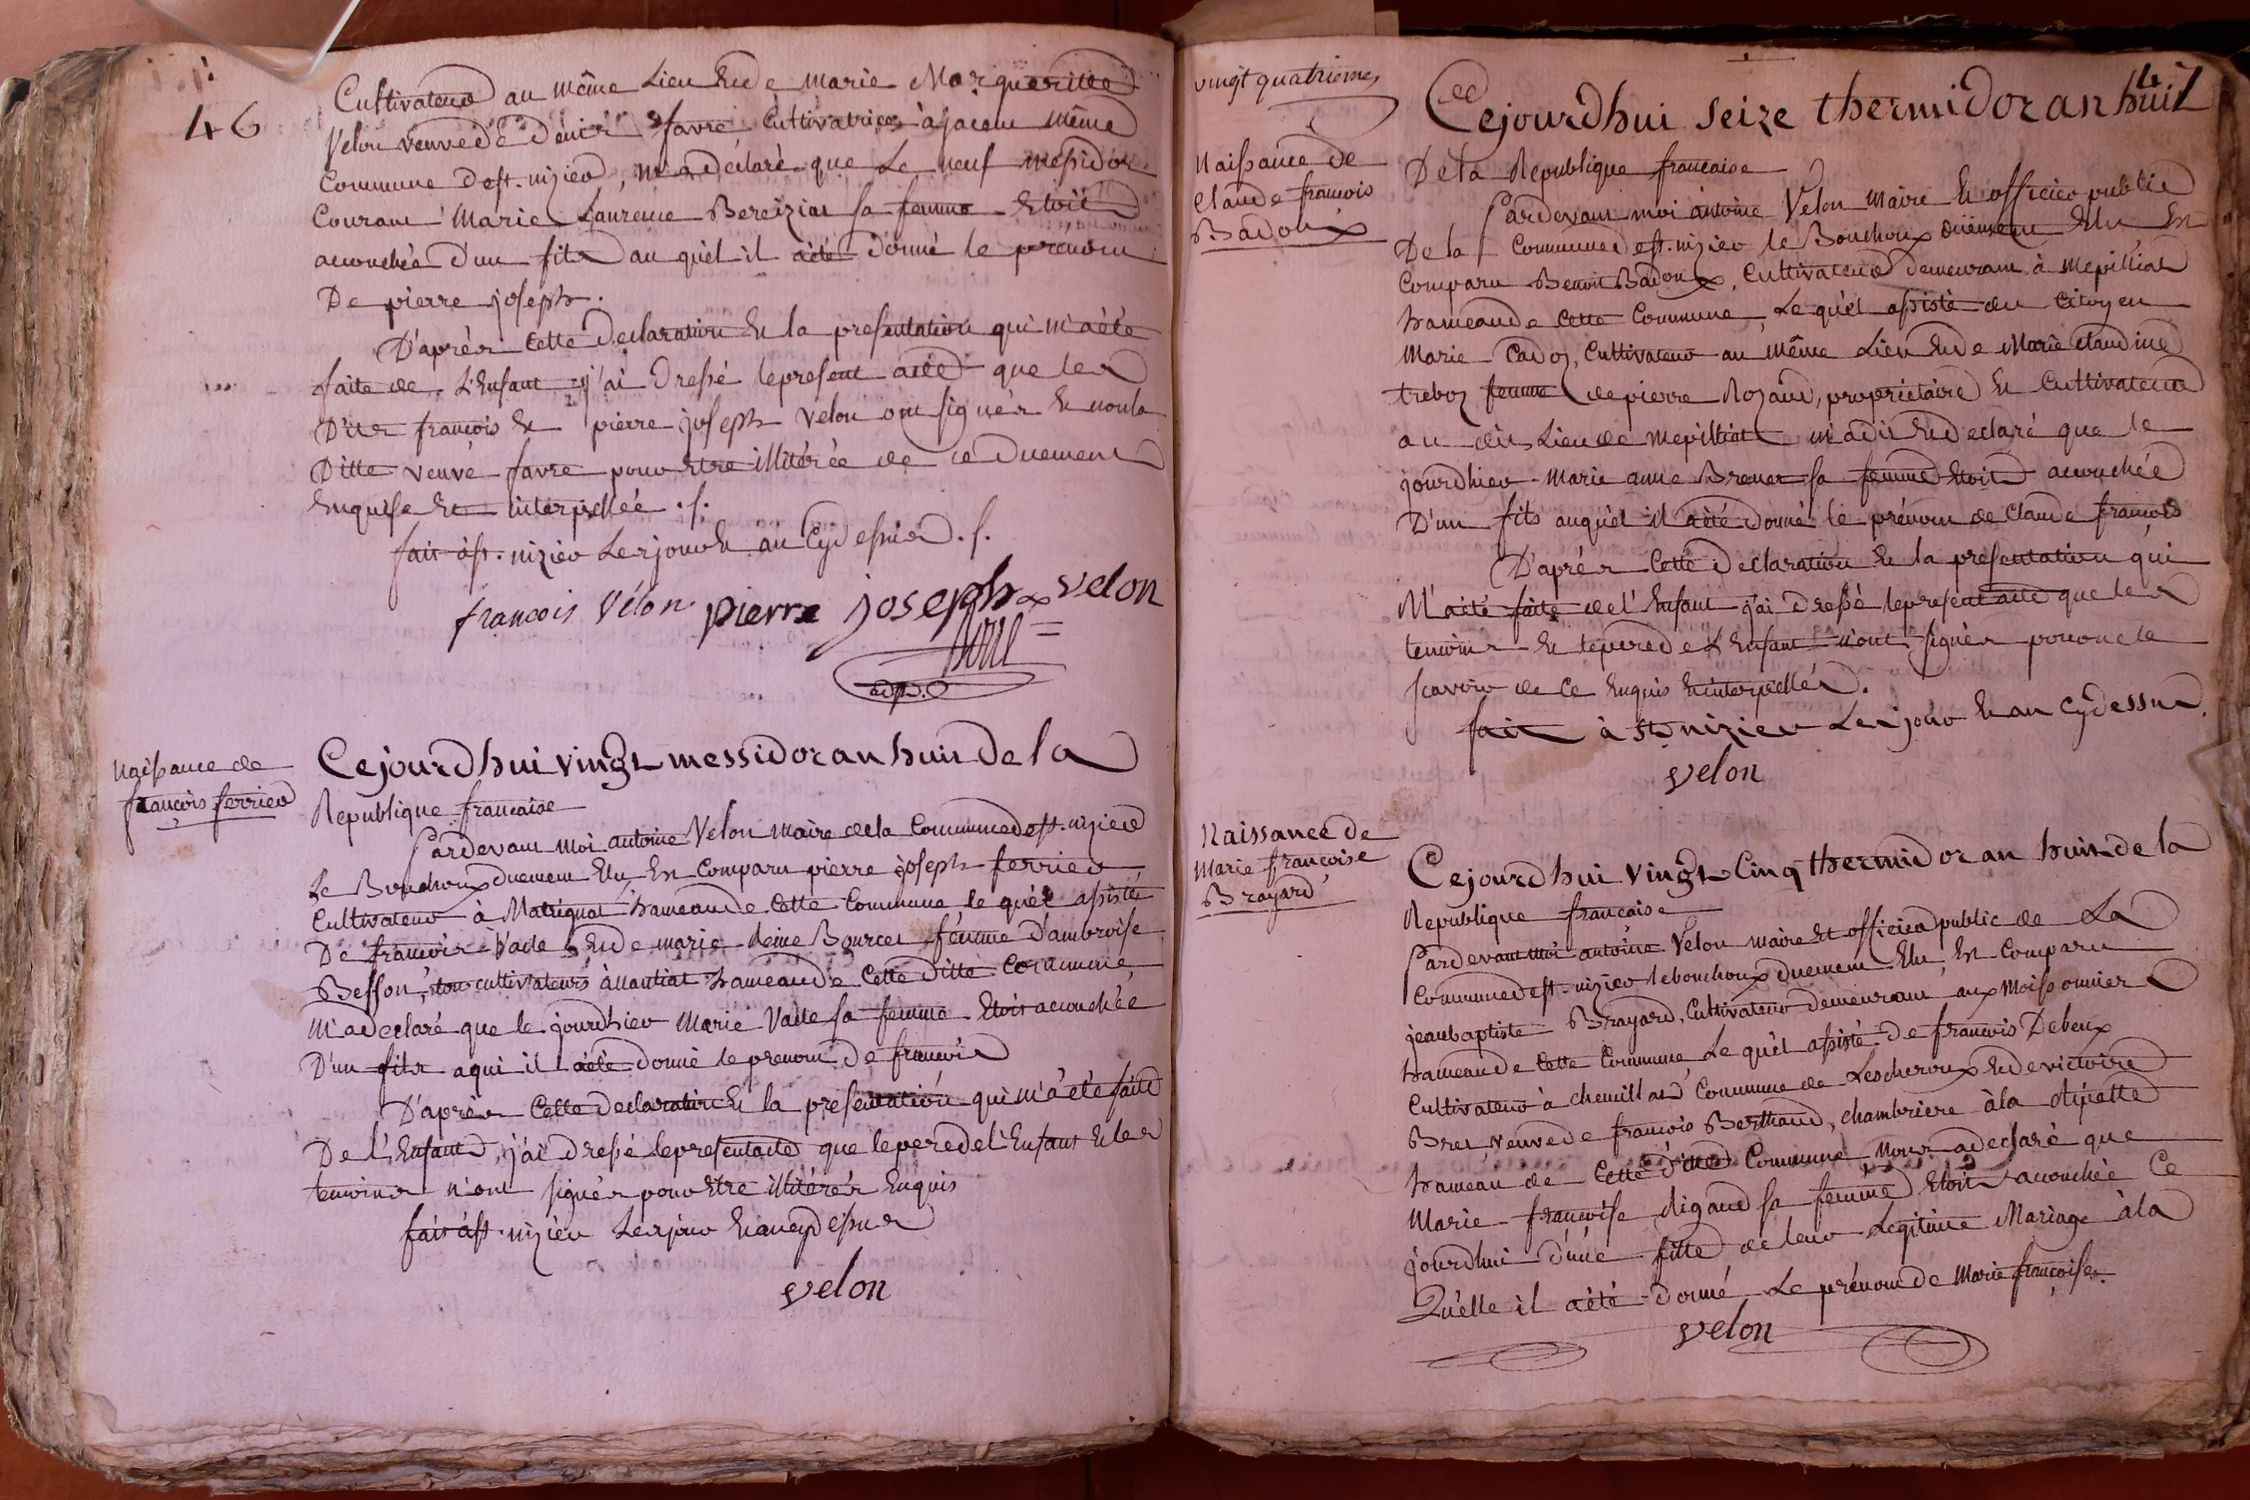 46
Cultivateur au même Lieu Et de marie Margueritte
Velon veuve de Denis favre Cultivatrice à jaceu même
Commune de st. nizier, m'a déclaré que Le neuf messidor
Courant Marie Laurence Bereiziat sa femme Etoit
accouchée d'un fils au quel il a été donné le prénom
De pierre joseph.
D'après Cette Declaration Et la presentation qui m'a été
faite de L'Enfant j'ai Dressé le present acte que les
Dits francois Et pierre joseph velon ont signés Et non la
Ditte veuve favre pour Etre illitérée de ce Duement
Enquise Et interpellée ./.
fait à st. nizier Les jour Et an Cy dessus ./.
francois Vélon pierre joseph velon
adj.
Naissance de
francois ferrier
Cejourdhui vingt messidor an huit de la
Republique francaise
Pardevant moi antoine Velon maire de la Commune de st. nizier
Le Bouchoux duement Elu, Est Comparu pierre joseph ferrier
Cultivateur à Matignat hameau de Cette Commune le quel assisté
De francois Vaile Et de marie Reine Bourcet femme d'ambroise
Besson, tous cultivateurs à nantiat hameau de Cette ditte Commune,
M'a declaré que le jourdhier Marie Vaile sa femme Etoit accouchée
D'un fils a qui il a été donné le prenom de francois
D'après Cette declaration Et la presentation qui m'a été faite
De l'Enfant, j'ai dressé le present acte que le pere de l'Enfant Et les
temoins n'ont signés pour Etre illitérés Enquis
fait à st. nizier Les jour Et an cy dessus
velon
vingt quatrieme,
47
Naissance de
Claude francois
Badoux
Cejourdhui seize thermidor an huit
De la Republique francaise
Pardevant moi antoine Velon maire Et officier public
De la Commune de st. nizier le Bouchoux duement Elu Est
Comparu Benoit Badoux, Cultivateur demeurant à mepilliat
hameau de Cette Commune, Le quel assisté du Citoyen
Marie Cadoz, Cultivateur au même Lieu Et de Marie claudine
treboz femme de pierre Rozand, propriétaire Et Cultivateur
au dit Lieu de mepilliat m'a dit Et declaré que le
jourdhier Marie anne Brevet sa femme Etoit accouchée
D'un fils auquel il a été donné le prénom de Claude francois
D'après Cette Declaration Et la presentation qui
M'a été faite de l'Enfant j'ai dressé le present acte que les
temoins Et le pere de L'Enfant n'ont signés pour ne le
scavoir de Ce Enquis Et interpellés.
fait à st nizier Les jour Et an Cy dessus.
velon
Naissance de
Marie francoise
Brayard
Cejourdhui vingt Cinq thermidor an huit de la
Republique francaise
Pardevant moi antoine Velon maire Et officier public de La
Commune de st. nizier le bouchoux duement Elu, Est Comparu
jean baptiste Brayard, Cultivateur demeurant aux Moissonniers
hameau de Cette Commune Le quel assisté de francois Debeux
Cultivateur à chemillat Commune de Lescheroux Et de victoire
Bret veuve de francois Berthaud, chambriere à la
hameau de Cette ditte Commune Nous a declaré que
Marie francoise Rigaud sa femme Etoit accouchée Ce
jourdhui d'une fille de leur Legitime Mariage à la
Quelle il a été donné Le prénom de Marie françoise.
velon